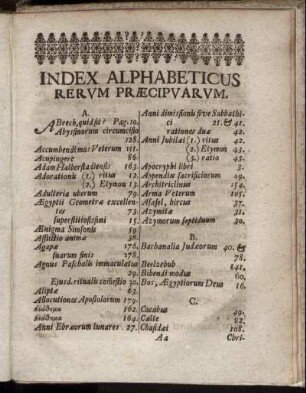 INDEX ALPHABETICUS
RERUM PRÆCIPVARUM.
A.
ABrech, quid sit? Pag. 10.
Abyssinorum circumcisio
128.
Accumbendi mos Veterum 151.
Accupingere 86.
Adam Halberstadiensis 163.
Adorationis (1.) ritus 12.
(2.) Etymon 13.
Adulteria uberum 79.
Ægyptii Geometræ excellen-
tes 73.
superstitiosissimi 15.
Ænigma Simsonis 59.
Afflictio anima 38.
Agapæ 176.
suarum finis 178.
Agnus Paschalis immaculatus
29.
Ejusd. ritualis comestio 30.
Aliptæ 63.
Allocutiones Apostolorum 179.
162.
164.
Anni Ebræorum lunares 27.
Anni dimissionis sive Sabbathi-
ci 21. & 41.
rationes duæ 42.
Anni Jubilæi (1.) ritus 42.
(2.) Etymon 43.
(3.) ratio 43.
Apocryphi libri 3.
Appendix sacrificiorum 49.
Architriclinus 154.
Arma Veterum 105.
Asasel, hircus 37.
Azymita 31.
Azymorum septiduum 30.
B.
Barbanalia Judæorum 40. &
78.
Beelzebub 141.
Bibendi modus 60.
Bos, Ægyptiorum Deus 16.
C.
Cacabus 49.
Calte 82.
Chasidæi 108.
Aa Chri-